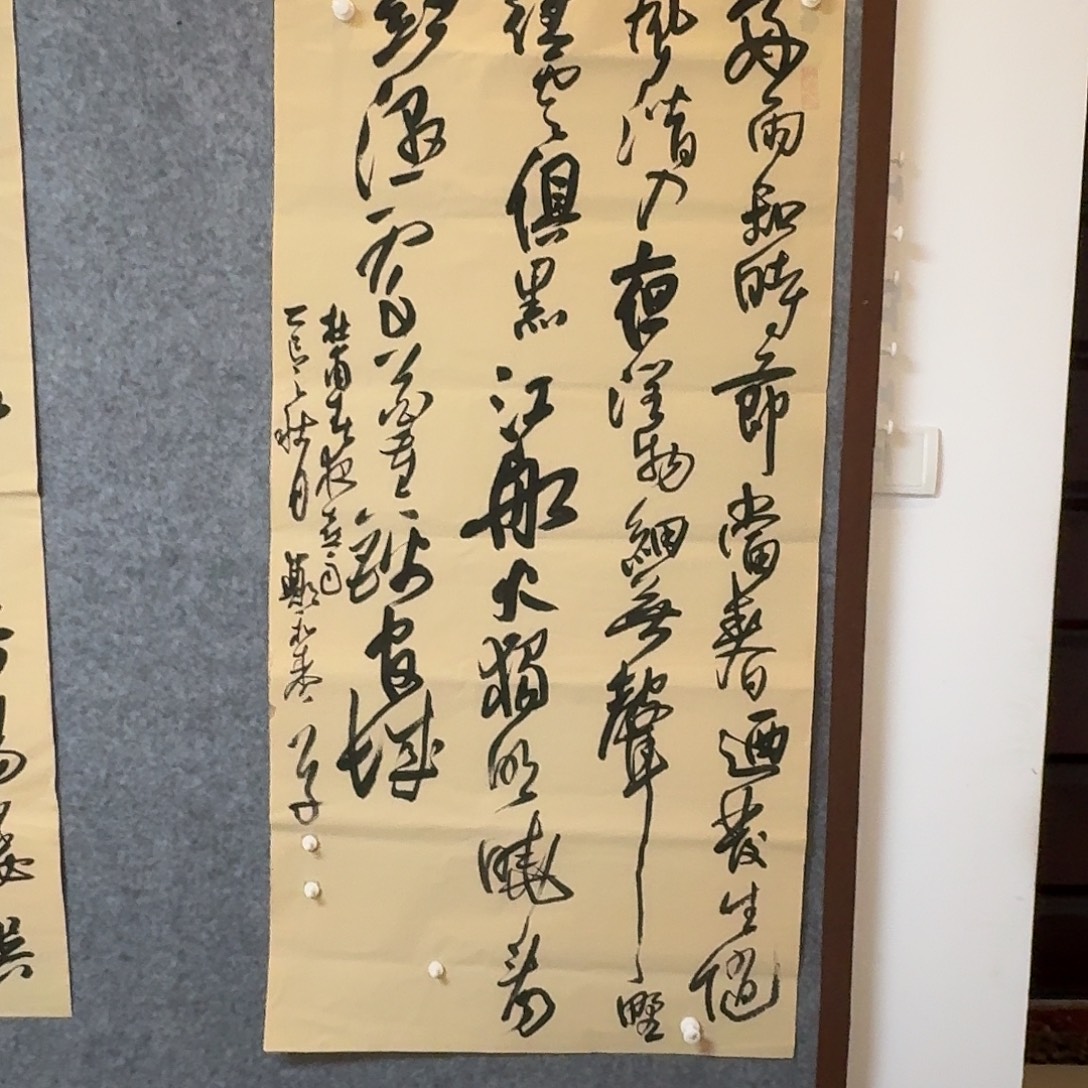 好雨知時節當春迺發生隨
風潛入夜潤物細無聲野
徑雲俱黑江船火獨明曉看
紅濕處花重錦官城
杜甫春夜喜雨
乙巳秋月鄭永